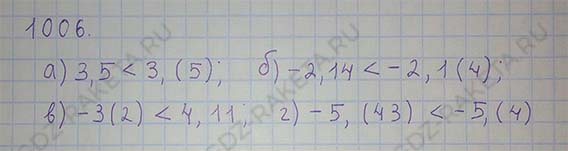 1006.
а) 3,5 < 3,(5); б) -2,14 < -2,1(4);
в) -3(2) < 4,11; г) -5,(43) < -5,(4)
GDZ-RAKETA.RU